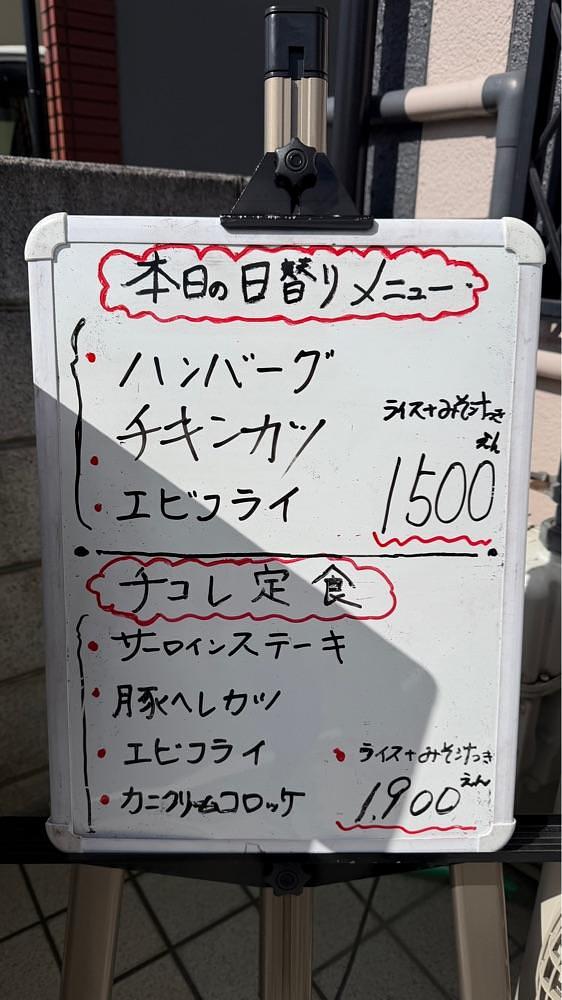 本日の日替りメニュー
ハンバーグ
チキンカツ
エビフライ
ライス+みそ汁つき
1500えん
チコレ定食
サーロインステーキ
豚ヘレカツ
エビフライ
カニクリームコロッケ
ライス+みそ汁つき
1,900えん